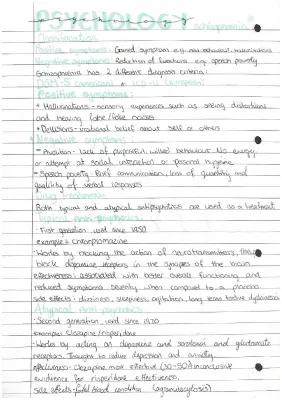 PSYCHOLOGY schizophrenia
Classification
Positive symptoms: Gained symptom e.g. new behaviour, hallucinations
Negative symptoms: Reduction of functions e.g. speech poverty
Schizophrenia has 2 different diagnosis criteria:
DSM-5 (American) + ICD-11 (European)
Positive symptoms:
+ Hallucinations - sensory experiences such as seeing distortions
and hearing false/fake noises
+ Delusions - irrational belief about self or others
Negative symptoms:
- Avolition - lack of purposeful, willed behaviour. No energy
or attempt at social interaction or personal hygiene
- Speech poverty. Brief communication, loss of quantity and
quality of verbal responses
Drug treatments
Both typical and atypical antipsychotics are used as a treatment
Typical Anti-psychotics:
- First generation used since 1950
example = Chlorpromazine
- Works by blocking the action of neurotransmitters, they
block dopamine receptors in the synapses of the brain
effectiveness: associated with better overall functioning and
reduced symptoms severity when compared to a placebo
side effects: dizziness, sleepiness, agitation, long term tardive dyskinesia
Atypical Anti-psychotics
- Second generation used since 1970
example: Clozapine/risperidone
- Works by acting on dopamine and serotonin and glutamate
receptors. Thought to reduce depression and anxiety
effectiveness - Clozapine more effective (30-50%) inconclusive
evidence for risperidone effectiveness.
side effects - fatal blood condition (agranulocytosis)